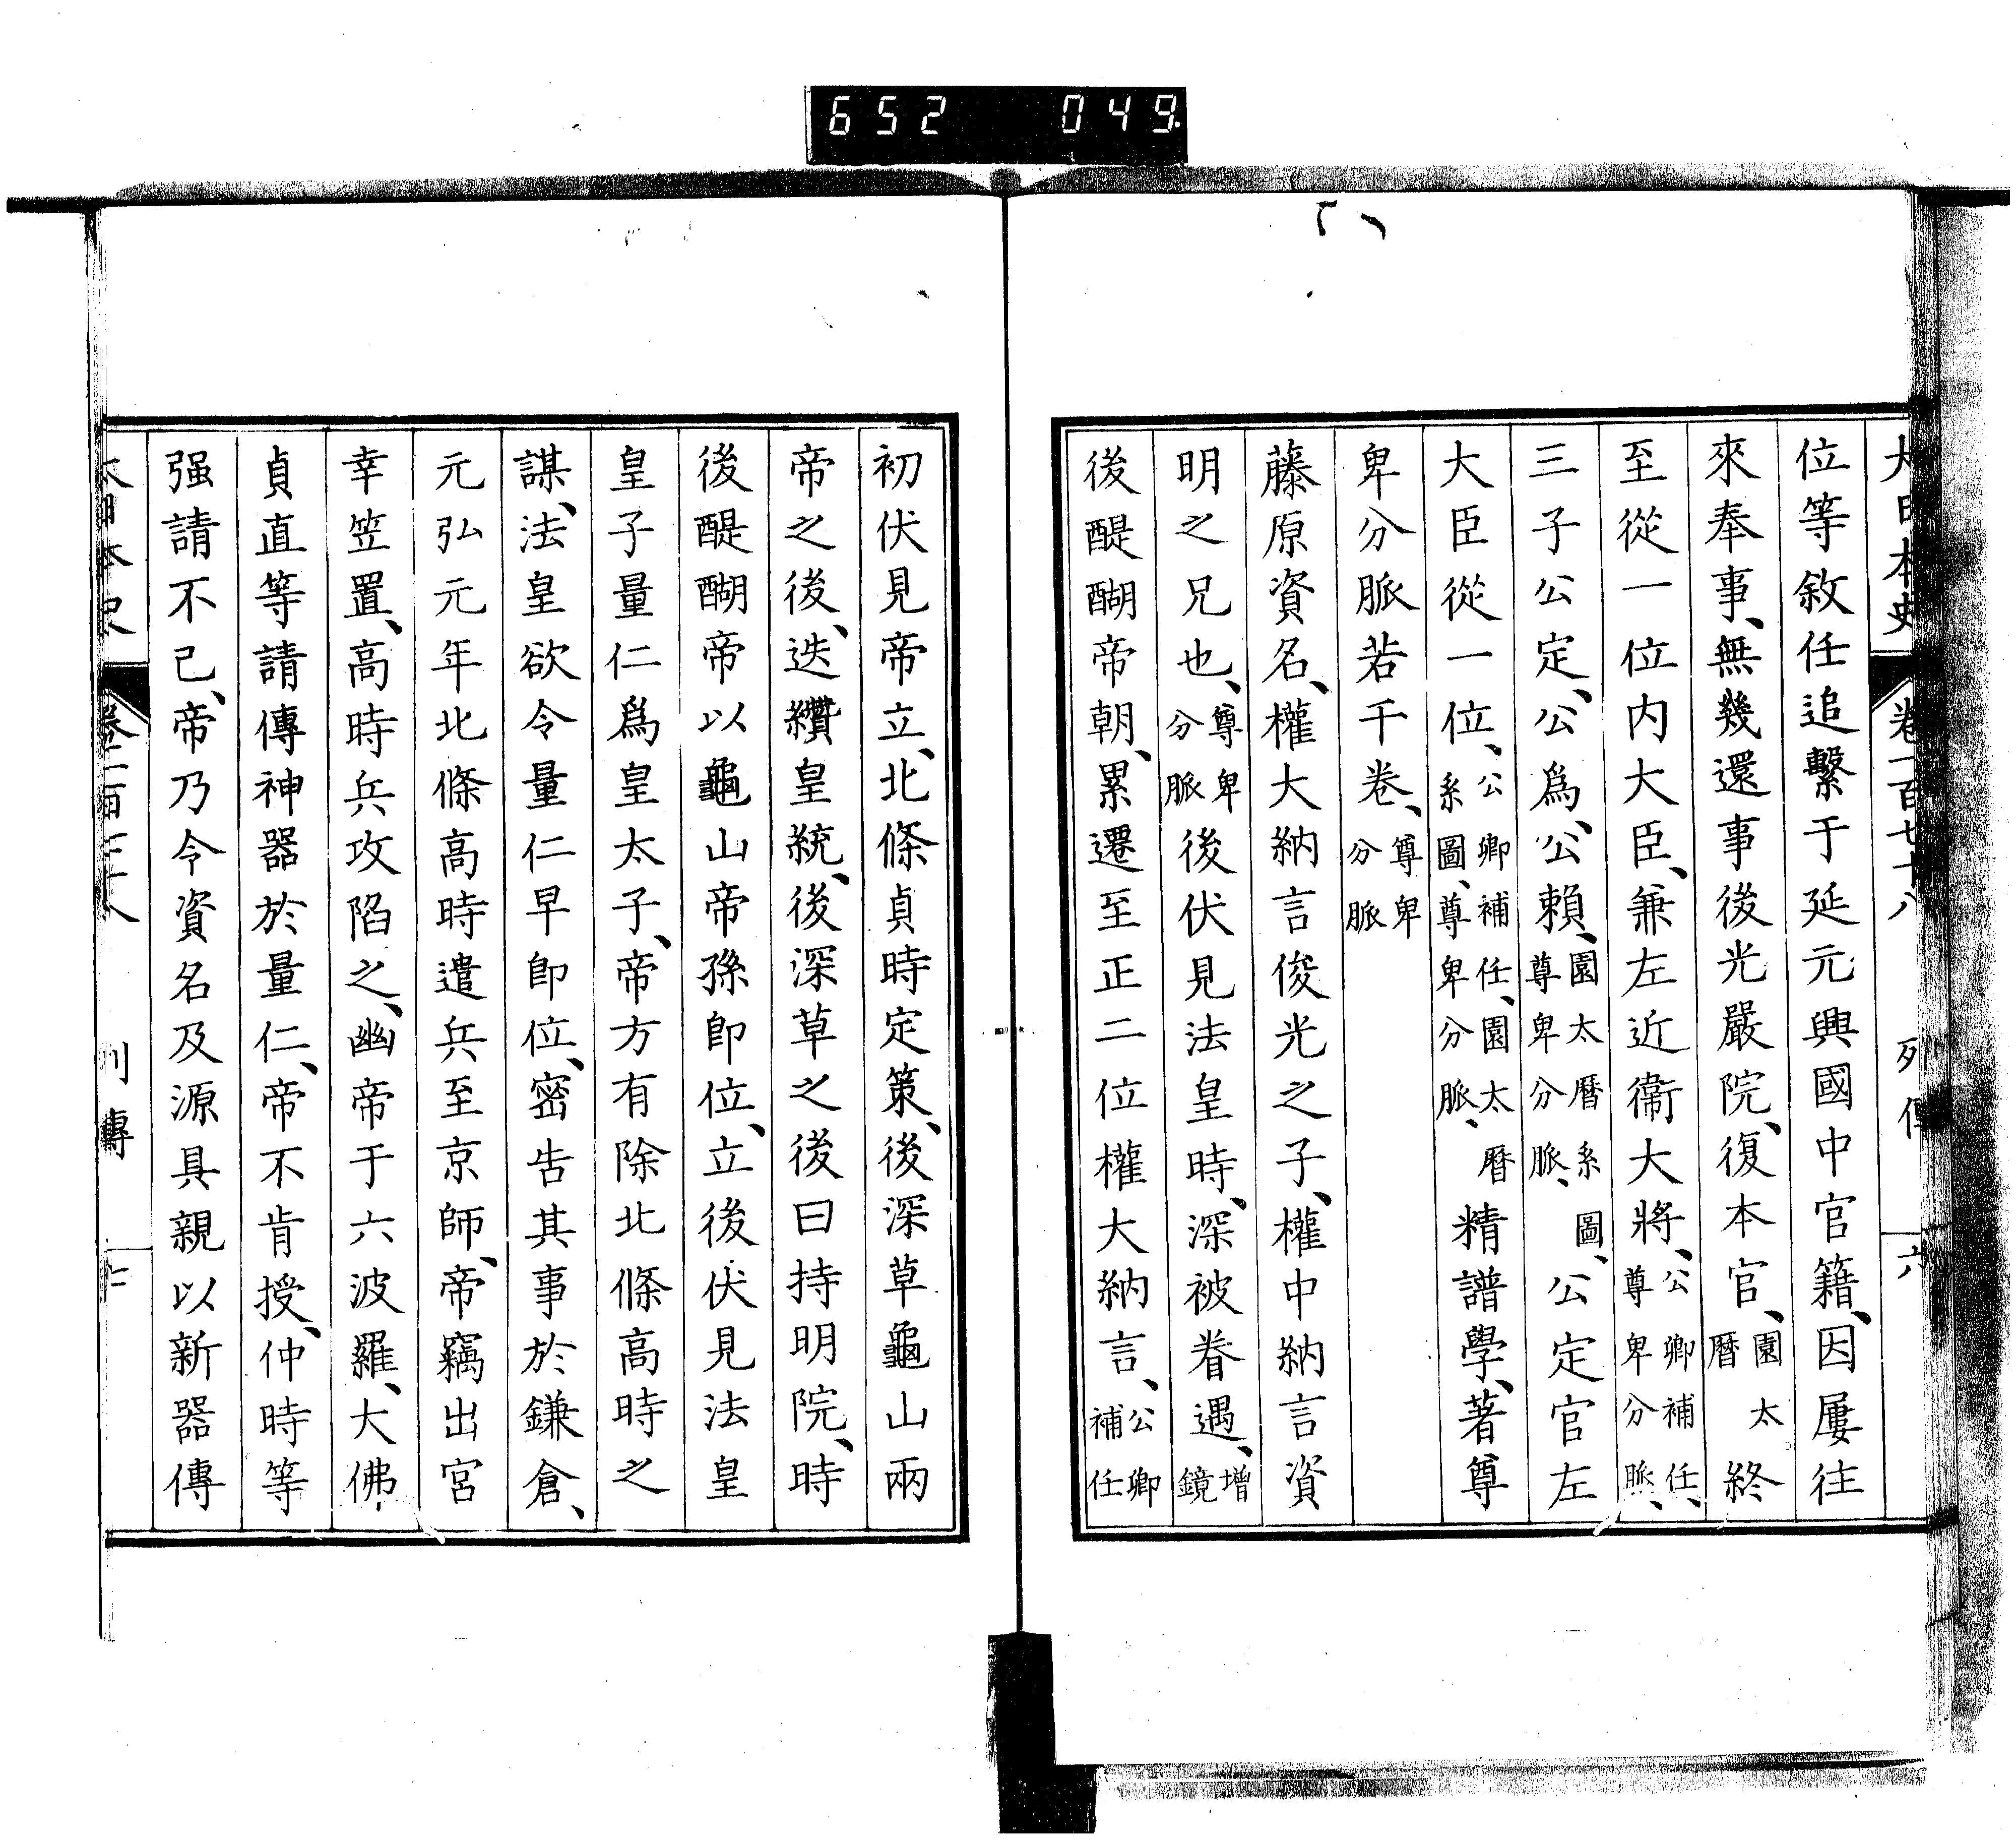 652 049
大日本史 卷一百七十八 列傳 六
位等敘任追繫于延元興國中官籍、因屢往
來奉事、無幾還事後光嚴院、復本官、園太曆終
至從一位内大臣、兼左近衞大將、公卿補任、尊卑分脈、
三子公定、公爲、公賴、園太曆系圖、尊卑分脈、公定官左
大臣從一位、公卿補任、園太曆系圖、尊卑分脈、精譜學、著尊
卑分脈若干卷、尊卑分脈
藤原資名、權大納言俊光之子、權中納言資
明之兄也、尊卑分脈後伏見法皇時、深被眷遇、增鏡
後醍醐帝朝、累遷至正二位權大納言、公卿補任
初伏見帝立、北條貞時定策、後深草龜山兩
帝之後、迭纘皇統、後深草之後曰持明院、時
後醍醐帝以龜山帝孫即位、立後伏見法皇
皇子量仁爲皇太子、帝方有除北條高時之
謀、法皇欲令量仁早即位、密告其事於鎌倉、
元弘元年北條高時遣兵至京師、帝竊出宮
幸笠置、高時兵攻陷之、幽帝于六波羅、大佛
貞直等請傳神器於量仁、帝不肯授、仲時等
强請不已、帝乃令資名及源具親以新器傳
本史 列傳